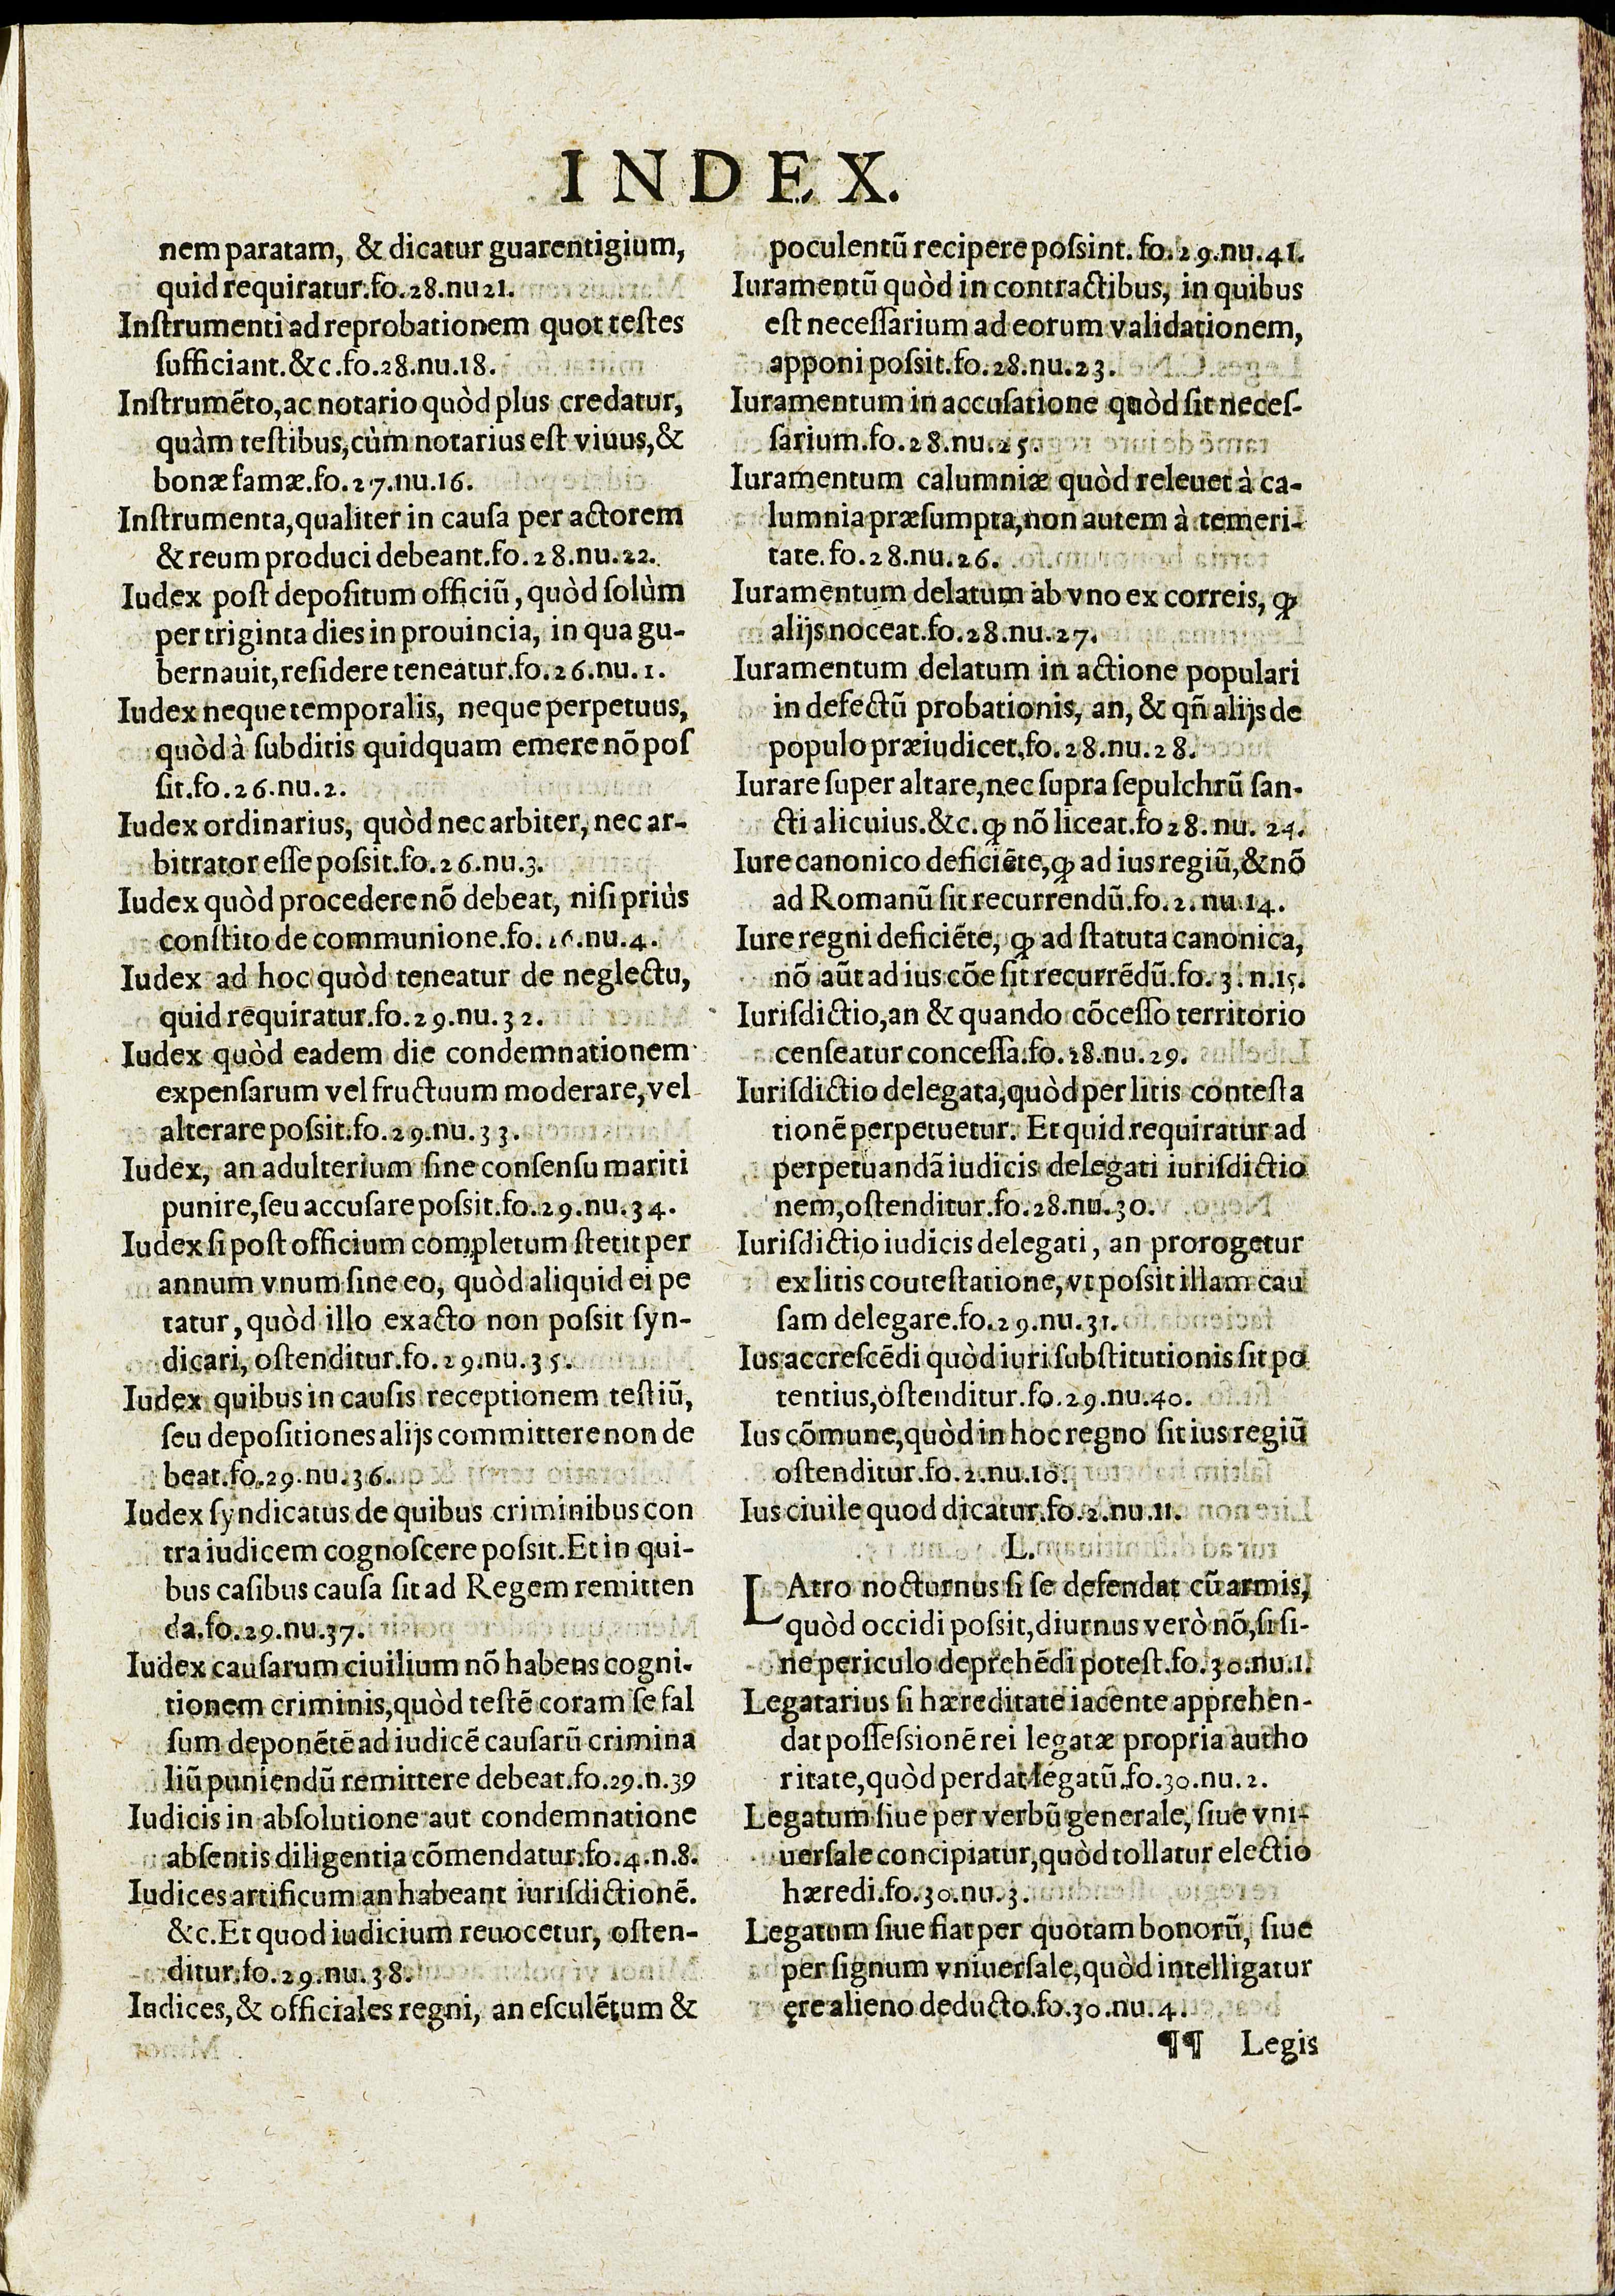 INDEX.
nem paratam, & dicatur guarentigium,
quid requiratur.fo.28.nu21.
Inſtrumenti ad reprobationem quot teſtes
ſufficiant.&c.fo.28.nu.18.
Inſtrumẽto, ac notario quòd plus credatur,
quàm teſtibus, cùm notarius eſt viuus, &
bonæ famæ.fo.27.nu.16.
Inſtrumenta, qualiter in cauſa per actorem
& reum produci debeant.fo.28.nu.22.
Iudex poſt depoſitum officiũ, quòd ſolùm
per triginta dies in prouincia, in qua gu-
bernauit, reſidere teneatur.fo.26.nu.1.
Iudex neque temporalis, neque perpetuus,
quòd à ſubditis quidquam emere nõ poſ
ſit.fo.26.nu.2.
Iudex ordinarius, quòd nec arbiter, nec ar-
bitrator eſſe poſsit.fo.26.nu.3.
Iudex quòd procedere nõ debeat, niſi priùs
conſtito de communione.fo.26.nu.4.
Iudex ad hoc quòd teneatur de neglectu,
quid requiratur.fo.29.nu.32.
Iudex quòd eadem die condemnationem
expenſarum vel fructuum moderare, vel
alterare poſsit.fo.29.nu.33.
Iudex, an adulterium ſine conſenſu mariti
punire, ſeu accuſare poſsit.fo.29.nu.34.
Iudex ſi poſt officium completum ſtetit per
annum vnum ſine eo, quòd aliquid ei pe
tatur, quòd illo exacto non poſsit ſyn-
dicari, oſtenditur.fo.29.nu.35.
Iudex quibus in cauſis receptionem teſtiũ,
ſeu depoſitiones alijs committere non de
beat.fo.29.nu.36.
Iudex ſyndicatus de quibus criminibus con
tra iudicem cognoſcere poſsit.Et in qui-
bus caſibus cauſa ſit ad Regem remitten
da.fo.29.nu.37.
Iudex cauſarum ciuilium nõ habens cogni-
tionem criminis, quòd teſtẽ coram ſe fal
ſum deponẽtẽ ad iudicẽ cauſarũ crimina
liũ puniendũ remittere debeat.fo.29.n.39
Iudicis in abſolutione aut condemnatione
abſentis diligentia cõmendatur.fo.4.n.8.
Iudices artificum an habeant iuriſdictionẽ.
&c.Et quod iudicium reuocetur, oſten-
ditur.fo.29.nu.38.
Iudices, & officiales regni, an eſculẽtum &
poculentũ recipere poſsint.fo.29.nu.41.
Iuramentũ quòd in contractibus, in quibus
eſt neceſſarium ad eorum validationem,
apponi poſsit.fo.28.nu.23.
Iuramentum in accuſatione quòd ſit neceſ-
ſarium.fo.28.nu.25.
Iuramentum calumniæ quòd releuet à ca-
lumnia præſumpta, non autem à temeri-
tate.fo.28.nu.26.
Iuramentum delatum ab vno ex correis, ꝙ
alijs noceat.fo.28.nu.27.
Iuramentum delatum in actione populari
in defectũ probationis, an, & qñ alijs de
populo præiudicet.fo.28.nu.28.
Iurare ſuper altare, nec ſupra ſepulchrũ ſan-
cti alicuius.&c. ꝙ nõ liceat.fo28.nu. 24.
Iure canonico deficiẽte, ꝙ ad ius regiũ, & nõ
ad Romanũ ſit recurrendũ.fo.2.nu.14.
Iure regni deficiẽte, ꝙ ad ſtatuta canonica,
nõ aũt ad ius cõe ſit recurrẽdũ.fo.3.n.15.
Iuriſdictio, an & quando cõceſſo territorio
cenſeatur conceſſa.fo.28.nu.29.
Iuriſdictio delegata, quòd per litis conteſta
tionẽ perpetuetur. Et quid requiratur ad
perpetuandã iudicis delegati iuriſdictio
nem, oſtenditur.fo.28.nu.30.
Iuriſdictio iudicis delegati, an prorogetur
ex litis couteſtatione, vt poſsit illam cau
ſam delegare.fo.29.nu.31.
Ius accreſcẽdi quòd iuri ſubſtitutionis ſit po
tentius, oſtenditur.fo.29.nu.40.
Ius cõmune, quòd in hoc regno ſit ius regiũ
oſtenditur.fo.2.nu.10.
Ius ciuile quod dicatur.fo.2.nu.11.
L.
LAtro nocturnus ſi ſe defendat cũ armis,
quòd occidi poſsit, diurnus verò nõ, ſi ſi-
ne periculo deprehẽdi poteſt.fo.30.nu.1.
Legatarius ſi hæreditate iacente apprehen-
dat poſſeſsionẽ rei legatæ propria autho
ritate, quòd perdat legatũ.fo.30.nu.2.
Legatum ſiue per verbũ generale, ſiue vni-
uerſale concipiatur, quòd tollatur electio
hæredi.fo.30.nu.3.
Legatum ſiue fiat per quotam bonorũ, ſiue
per ſignum vniuerſale, quòd intelligatur
ęre alieno deducto.fo.30.nu.4.
¶¶ Legis